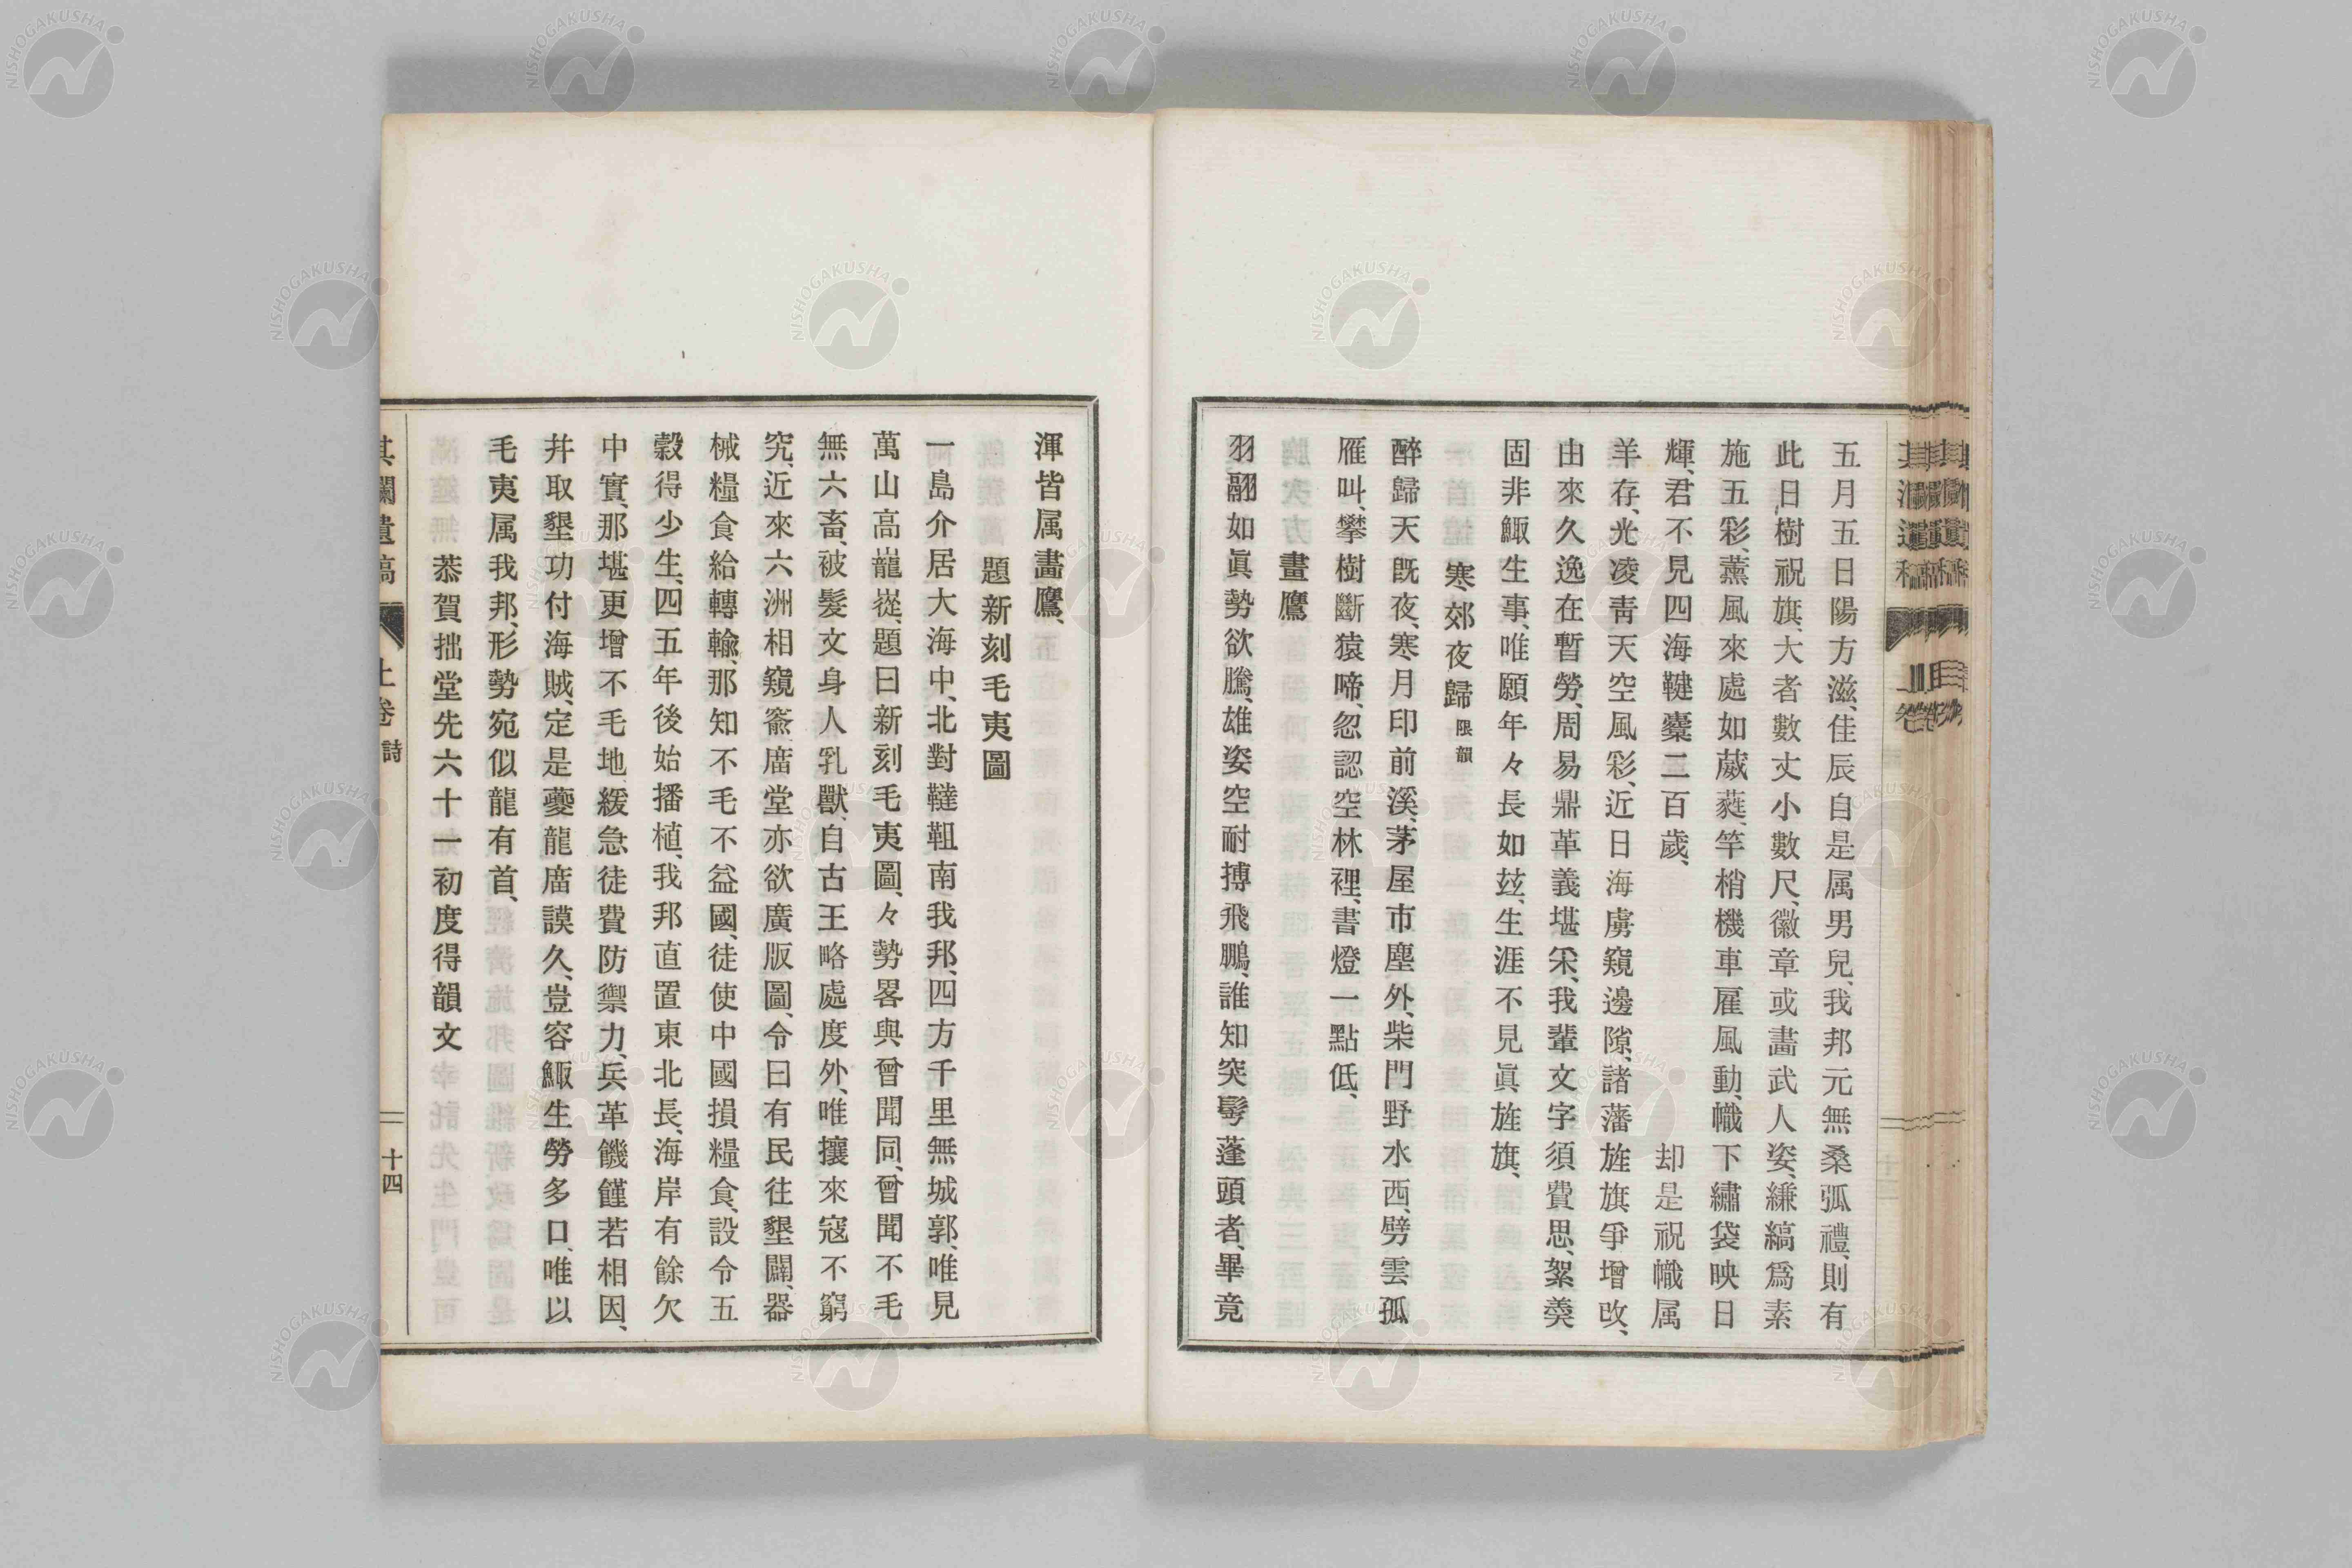 五月五日陽方滋、佳辰自是属男兒、我邦元無桑弧禮、則有
此日樹祝旗、大者數丈小數尺、徽章或畵武人姿、縑縞爲素
施五彩、薰風來處如葳蕤、竿梢機車雇風動、幟下繡袋映日
輝、君不見四海鞬櫜二百歲、却是祝幟属
羊存、光凌靑天空風彩、近日海虜窺邊隙、諸藩旌旗爭增改、
由來久逸在暫勞、周易鼎革義堪采、我輩文字須費思、絮羮
固非鯫生事、唯願年々長如玆、生涯不見眞旌旗、
寒郊夜歸 限韻
醉歸天既夜、寒月印前溪、茅屋市塵外、柴門野水西、劈雲孤
雁叫、攀樹斷猿啼、忽認空林裡、書燈一點低、
畫鷹
羽翮如眞勢欲騰、雄姿空耐搏飛鵬、誰知突鬢蓬頭者、畢竟
渾皆属畵鷹、
題新刻毛夷圖
一島介居大海中、北對韃靼南我邦、四方千里無城郭、唯見
萬山高巃嵸、題曰新刻毛夷圖、々勢畧與曾聞同、曾聞不毛
無六畜、被髮文身人乳獸、自古王略處度外、唯攘來寇不窮
究、近來六洲相窺窬、廣堂亦欲廣版圖、令曰有民往墾闢、器
械糧食給轉輸、那知不毛不益國、徒使中國損糧食、設令五
穀得少生、四五年後始播植、我邦直置東北長、海岸有餘欠
中實、那堪更增不毛地、緩急徒費防禦力、兵革饑饉若相因、
幷取墾功付海賊、定是夔龍廣謨久、豈容鯫生勞多口、唯以
毛夷属我邦、形勢宛似龍有首、
恭賀拙堂先六十一初度得韻文
淇瀾遺稿 上卷 詩 十四